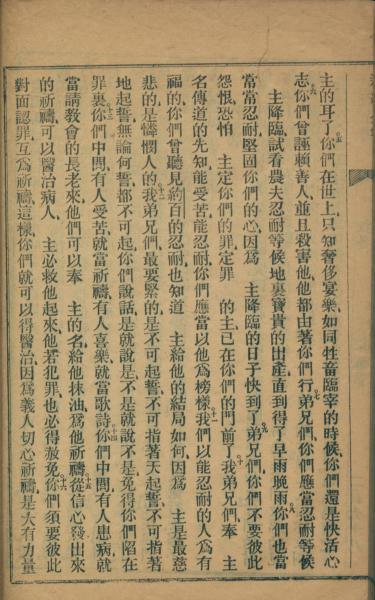 主的耳了、五你們在世上、只知奢侈宴樂、如同牲畜臨宰的時候、你們還是快活心
志、六你們曾誣賴善人、並且殺害他、他都由著你們行、七弟兄們、你們應當忍耐等候
主降臨、試看農夫忍耐等候地裏寶貴的出產、直到得了早雨晚雨、八你們也當
常常忍耐、堅固你們的心、因爲 主降臨的日子快到了、九弟兄們、你們不要彼此
怨恨、恐怕 主定你們的罪、定罪 的主已在你們的門前了、十我弟兄們、奉 主
名傳道的先知、能受苦能忍耐、你們應當以他爲榜樣、十一我們以能忍耐的人爲有
福的、你們曾聽見約百的忍耐、也知道 主給他的結局如何、因爲 主是最慈
悲的、是憐憫人的、十二我弟兄們、最要緊的是不可起誓、不可指著天起誓、不可指著
地起誓、無論何誓都不可起、你們說話、是就說是、不是就說不是、免得你們陷在
罪裏、十三你們中間有人受苦、就當祈禱、有人喜樂、就當歌詩、十四你們中間有人患病、就
當請敎會的長老來、他們可以奉 主的名給他抹油、爲他祈禱、十五從信心發出來
的祈禱、可以醫治病人、 主必救他起來、他若犯罪、也必得赦免、十六你們須要彼此
對面認罪、互爲祈禱、這樣、你們就可以得醫治、因爲義人切心祈禱、是大有力量